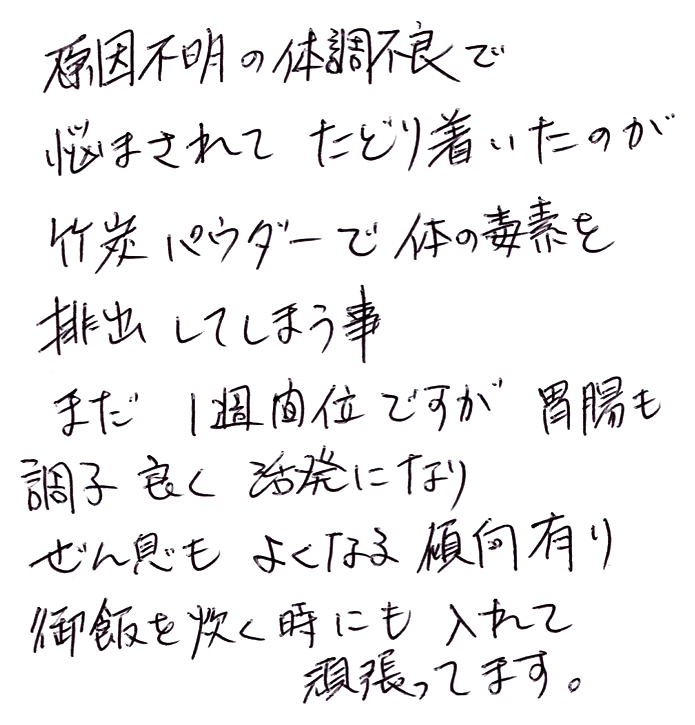 原因不明の体調不良で
悩まされて たどり着いたのが
竹炭パウダーで体の毒素を
排出してしまう事
まだ 1週間位ですが 胃腸も
調子良く 活発になり
ぜん息も よくなる傾向有り
御飯を炊く時にも 入れて
頑張ってます。